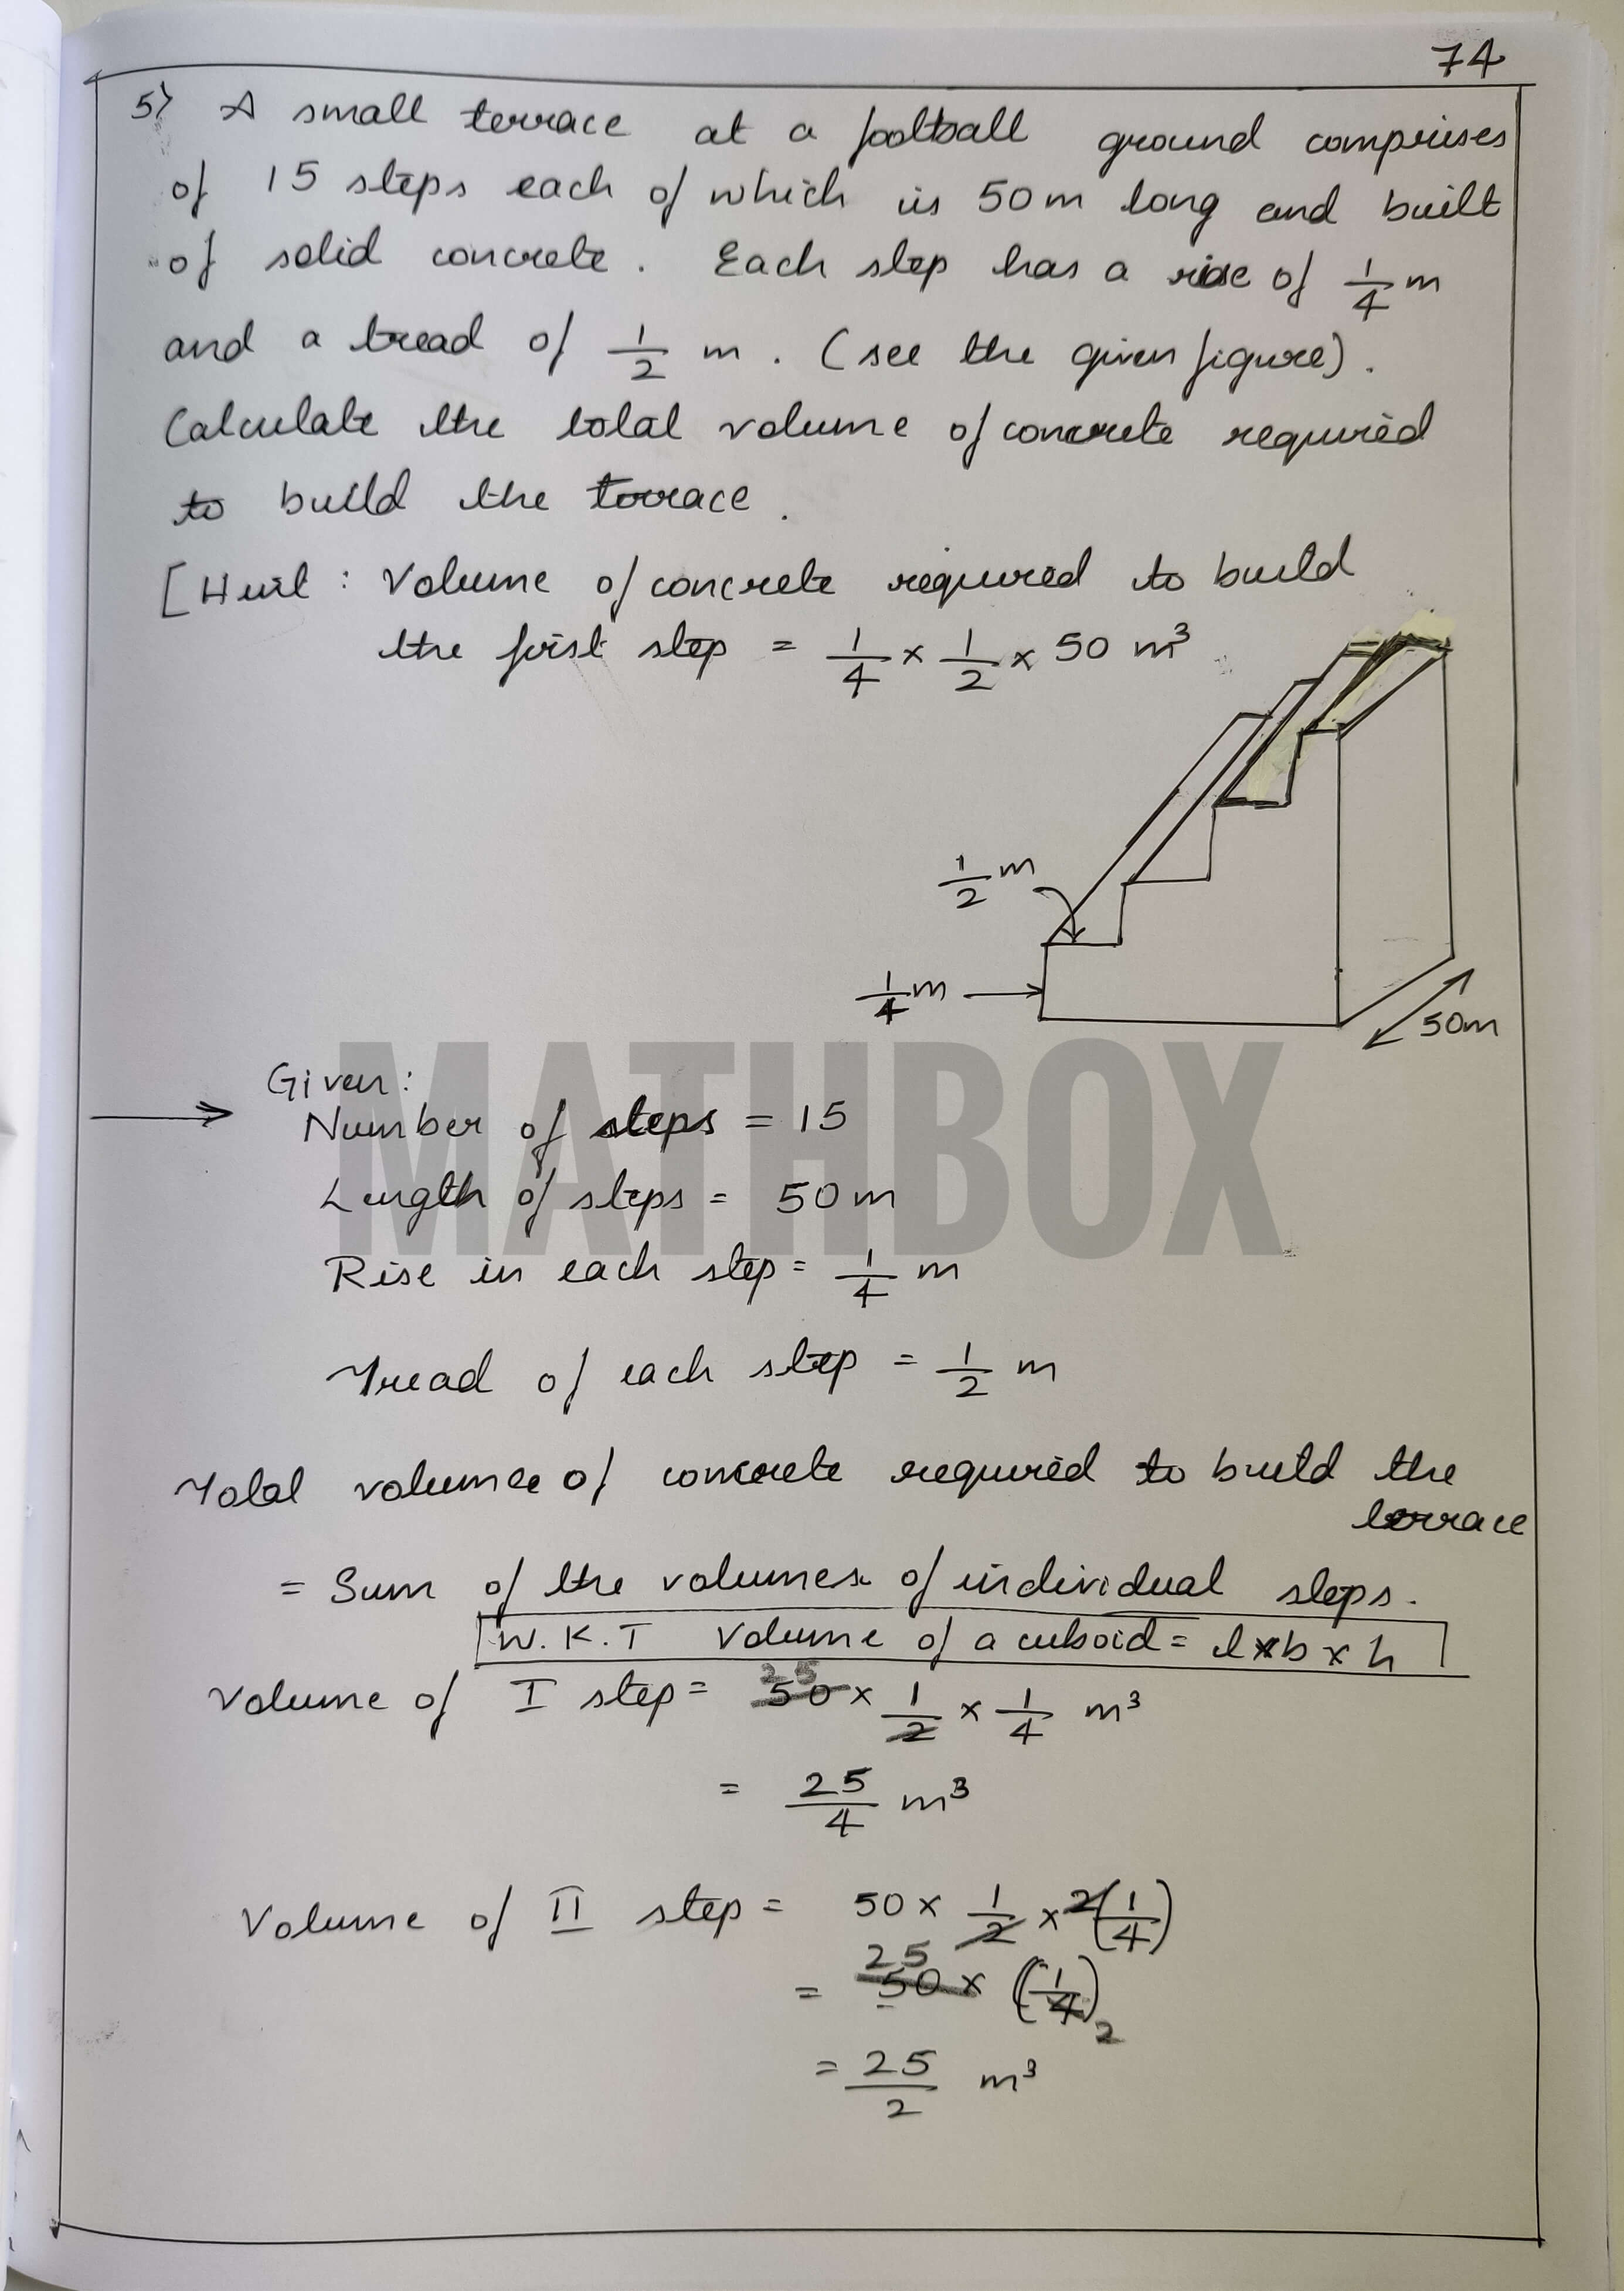 74
5) A small terrace at a football ground comprises
of 15 steps each of which is 50m long and built
of solid concrete. Each step has a rise of 1/4 m
and a tread of 1/2 m. (see the given figure).
Calculate the total volume of concrete required
to build the terrace.
[Hint: Volume of concrete required to build
the first step = 1/4 × 1/2 × 50 m³
1/2 m
1/4 m
50m
MATHBOX
Given:
Number of steps = 15
Length of steps = 50m
Rise in each step = 1/4 m
Tread of each step = 1/2 m
Total volume of concrete required to build the
terrace
= Sum of the volumes of individual steps.
W.K.T Volume of a cuboid = l×b×h
25
Volume of I step = 50 × 1/2 × 1/4 m³
= 25/4 m³
Volume of II step = 50 × 1/2 × 2(1/4)
25
= 50 × (1/4)
2
= 25/2 m³